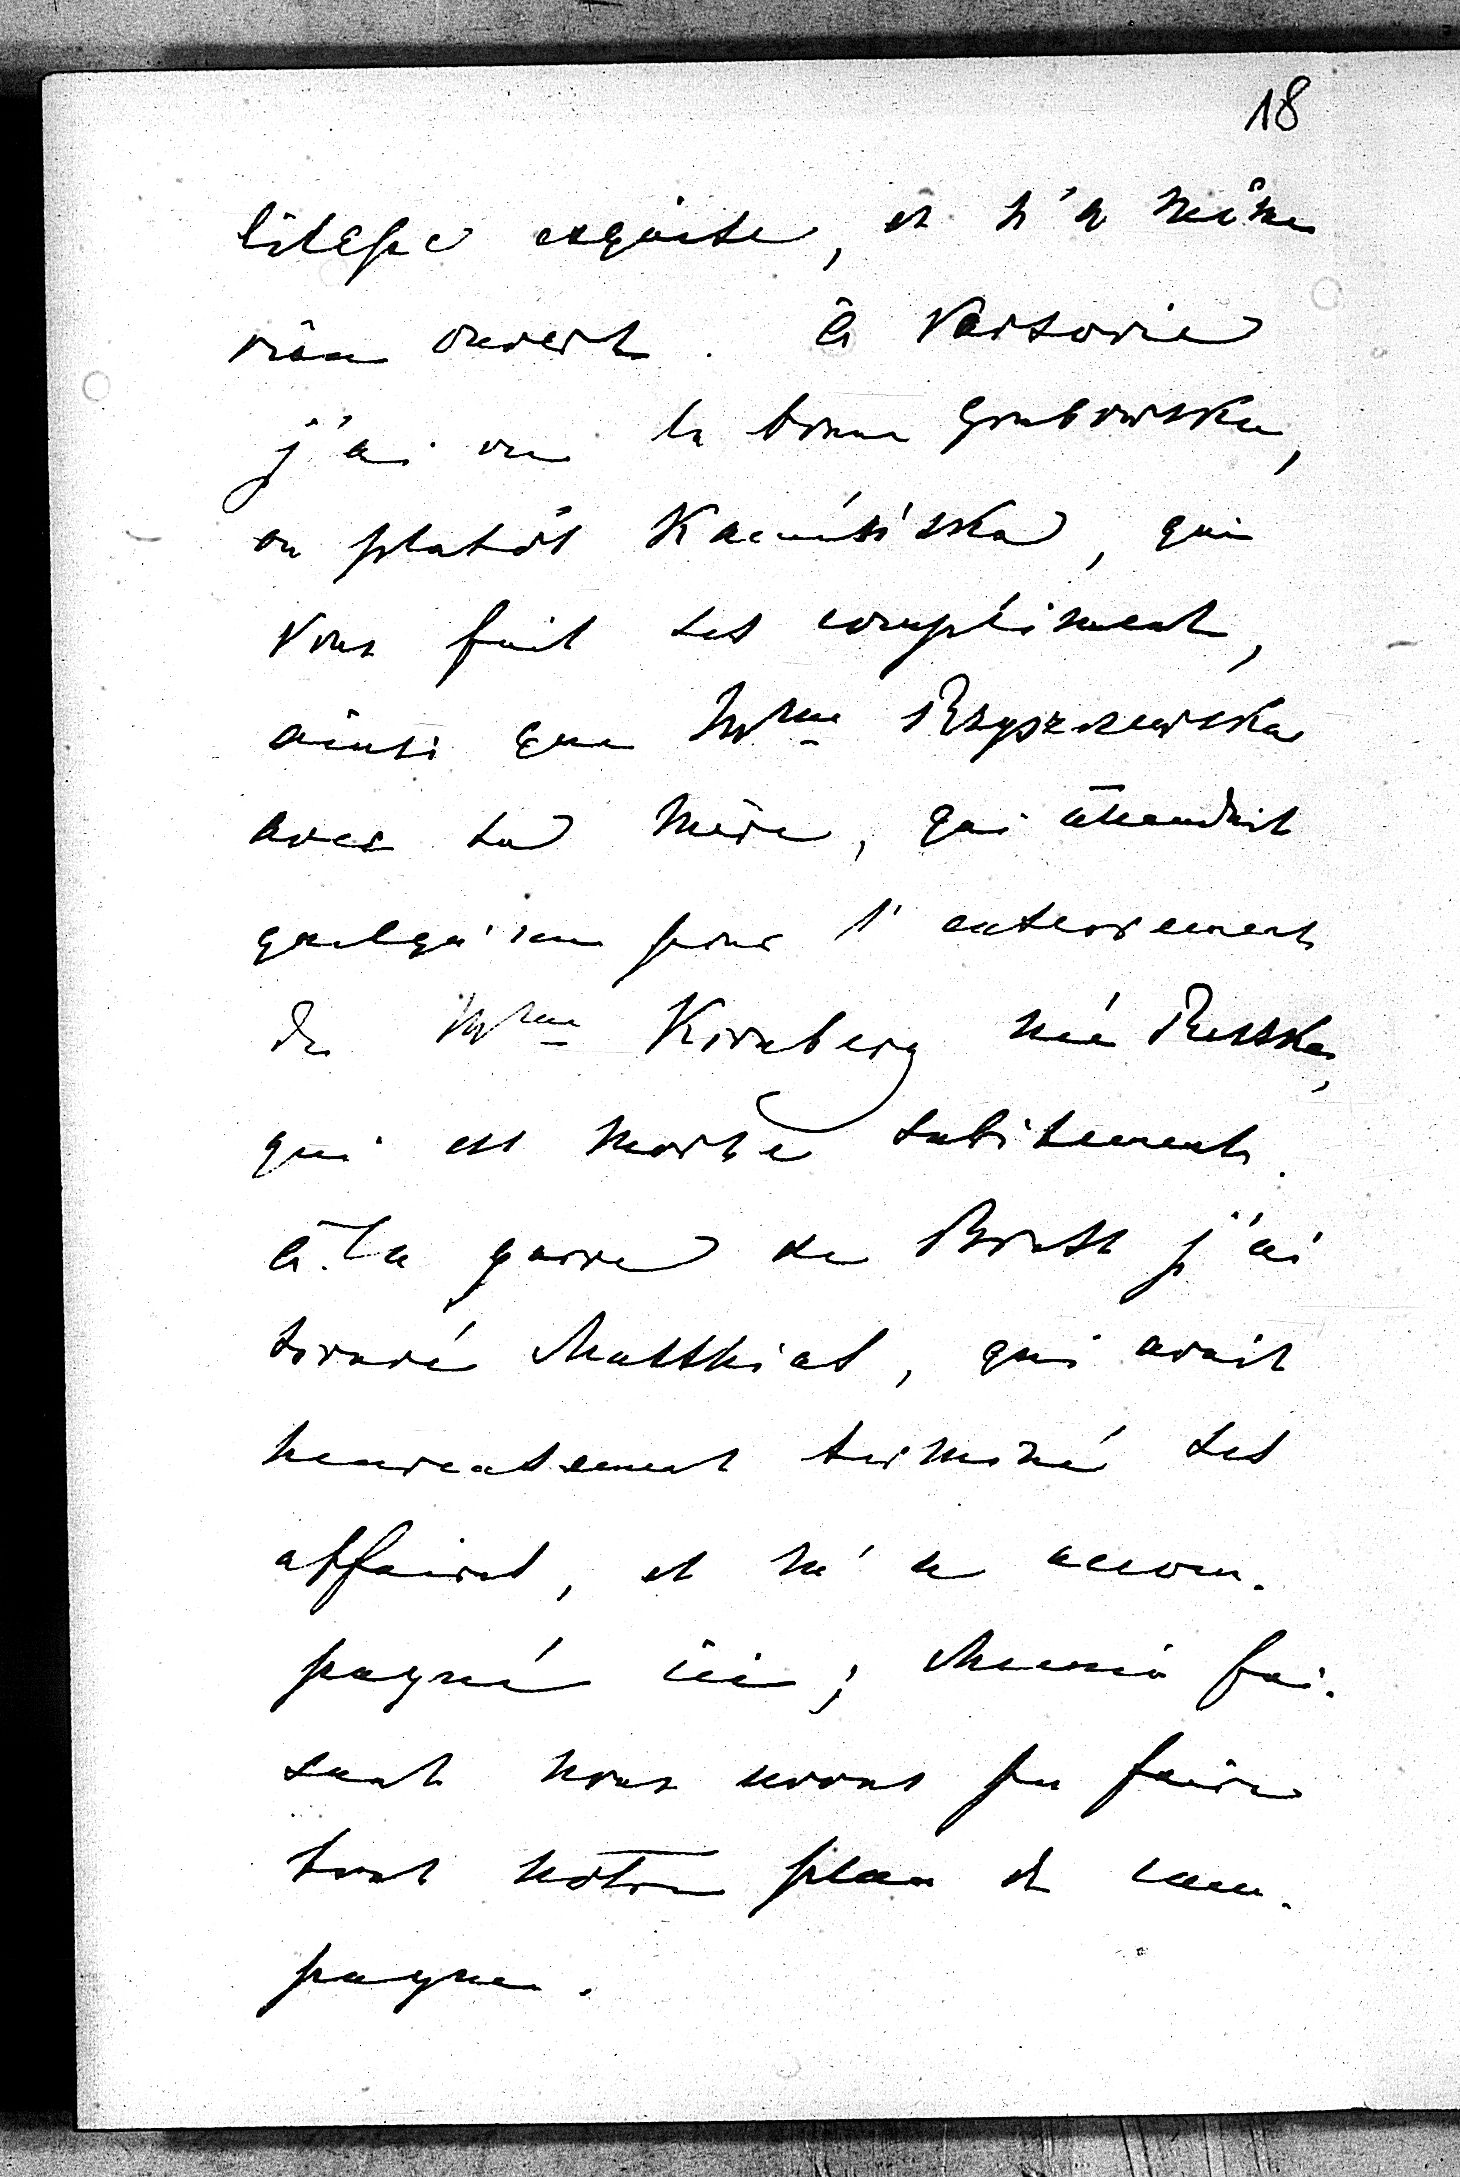 18
litesse exquise, et n'a même
rien ouvert. à Varsovie
j'ai vu la bonne Grabowska,
ou plutôt Kamińska, qui
vous fait ses compliments,
ainsi que Mme Rzyszczewska
avec sa mère, qui attendait
quelqu'un pour l'enterrement
de Mme Kronberg née Russka,
qui est morte subitement.
à la garre de Brest j'ai
trouvé Matthias, qui avait
heureusement terminé ses
affaires, et m'a accom-
pagné ici; fai-
sant nous avons pu faire
tout nôtre plan de cam-
pagne.